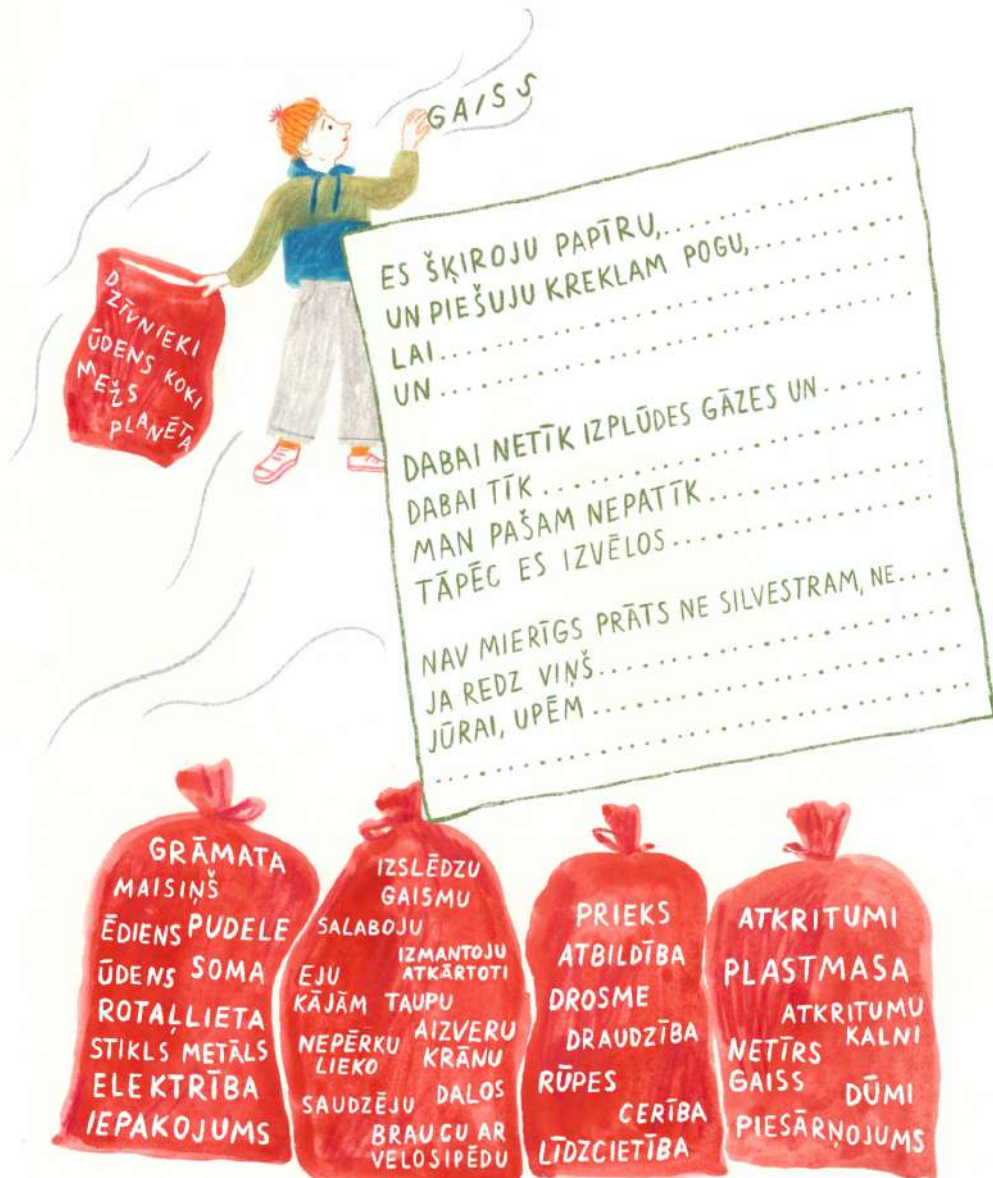 GAISS
ES ŠĶIROJU PAPĪRU,..............
UN PIEŠUJU KREKLAM POGU,..........
LAI..............................
UN..............................
DABAI NETĪK IZPLŪDES GĀZES UN.......
DABAI TĪK..........................
MAN PAŠAM NEPATĪK................
TĀPĒC ES IZVĒLOS..................
NAV MIERĪGS PRĀTS NE SILVESTRAM, NE....
JA REDZ VIŅŠ.......................
JŪRAI, UPĒM.......................
...................................
DZĪVNIEKI
ŪDENS KOKI
MEŽS
PLANĒTA
GRĀMATA
MAISIŅŠ
ĒDIENS PUDELE
ŪDENS SOMA
ROTAĻLIETA
STIKLS METĀLS
ELEKTRĪBA
IEPAKOJUMS
IZSLĒDZU
GAISMU
SALABOJU
IZMANTOJU
ATKĀRTOTI
EJU
KĀJĀM TAUPU
NEPĒRKU
LIEKO
AIZVERU
KRĀNU
SAUDZĒJU DALOS
BRAUCU AR
VELOSIPĒDU
PRIEKS
ATBILDĪBA
DROSME
DRAUDZĪBA
RŪPES
CERĪBA
LĪDZCIETĪBA
ATKRITUMI
PLASTMASA
ATKRITUMU
KALNI
NETĪRS
GAISS
DŪMI
PIESĀRŅOJUMS